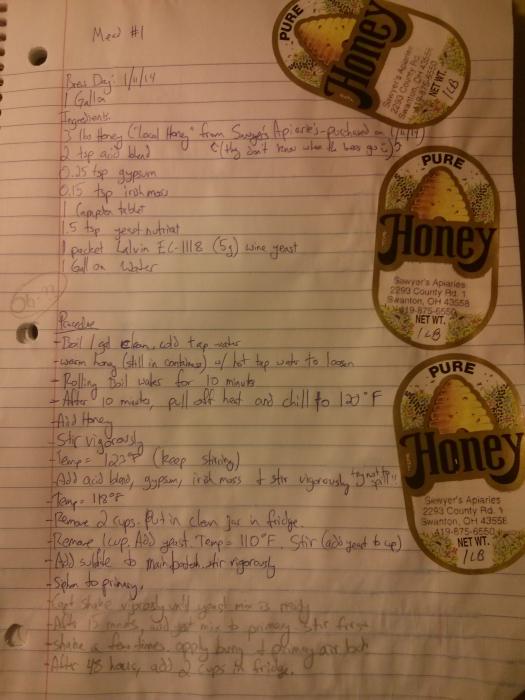 Mead #1
Brew Day: 1/11/14
1 Gallon
Ingredients
3 lbs Honey ("local Honey" from Sawyer's Apiaries - purchased on 1/11/14)
(they don't know where the bees go :)
2 tsp acid blend
0.25 tsp gypsum
0.15 tsp irish moss
1 Campden tablet
1.5 tsp yeast nutrient
1 packet Lalvin EC-1118 (5g) wine yeast
1 Gallon Water
Procedure
- Boil 1 gal clean, cold tap water
- warm honey (still in containers) w/ hot tap water to loosen
- Rolling Boil water for 10 minutes
- After 10 minutes, pull off heat and chill to 120°F
- Add Honey
- Stir vigorously
- Temp = 122°F (keep stirring)
- Add acid blend, gypsum, irish moss + stir vigorously try not to spill!!
- Temp = 118°F
- Remove 2 cups. Put in clean jar in fridge.
- Remove 1 cup, Add yeast. Temp = 110°F. Stir (add yeast to cup)
- Add sulfite to main batch, stir vigorously
- Siphon to primary.
- Kept shake vigorously until yeast mix is ready
- After 15 minutes, add yeast mix to primary
- Shake a few times. apply bung + primary air lock
- After 48 hours, add 2 cups in fridge.
PURE
Honey
Sawyer's Apiaries
2293 County Rd. 1
Swanton, OH 43558
NET WT.
1 LB
PURE
Honey
Sawyer's Apiaries
2293 County Rd. 1
Swanton, OH 43558
419-875-6550
NET WT.
1 LB
PURE
Honey
Sawyer's Apiaries
2293 County Rd. 1
Swanton, OH 43558
419-875-6550
NET WT.
1 LB